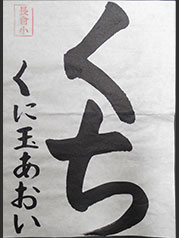 くち
くに玉あおい
長倉小